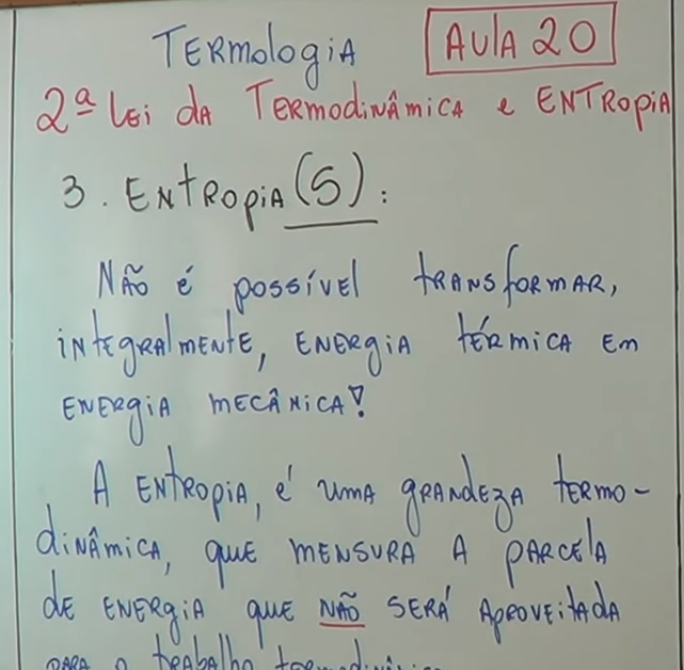 Termologia AULA 20
2ª Lei da Termodinâmica e Entropia
3. Entropia (S):
Não é possível transformar,
integralmente, energia térmica em
energia mecânica!
A entropia, é uma grandeza termo-
dinâmica, que mensura a parcela
de energia que NÃO será aproveitada
para o trabalho